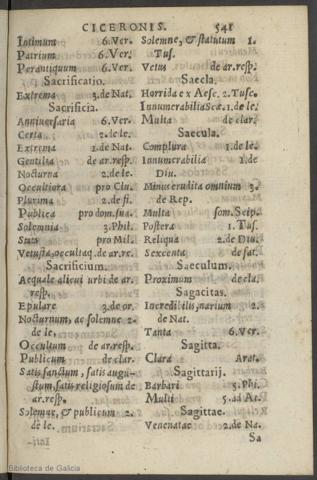 CICERONIS. 541
Intimum 6.Ver.
Patrium 6.Ver.
Perantiquum 6.Ver.
Sacrificatio.
Extrema 3.de Nat.
Sacrificia.
Anniversaria 6.Ver.
Certa 2.de le.
Extrema 1.de Nat.
Gentilia de ar.resp.
Nocturna 2.de le.
Occultiora pro Clu.
Plurima 2.de fi.
Publica pro dom.sua.
Solemnia 3.Phil.
Stata pro Mil.
Vetusta,occultaq. de ar.re.
Sacrificium.
Aequale alicui urbi de ar.
resp.
Epulare 3.de or.
Nocturnum, ac solemne 2.
de le.
Occultum de ar.resp.
Publicum de clar.
Satis sanctum, satis augu-
stum,satis religiosum de
ar.resp.
Solemne, & publicum 2.
de le.
Solemne, & statutum 1.
Tus.
Vetus de ar.resp.
Saecla.
Horrida ex Aesc. 2.Tusc.
Innumerabilia Scæ.1.de le.
Multa de clar.
Saecula.
Complura 1.de le.
Innumerabilia 1.de
Diu.
Minus erudita omnium 3.
de Rep.
Multa som.Scip.
Postera 1.Tus.
Reliqua 2.de Diu.
Sexcenta de fat.
Saeculum.
Proximum de cla.
Sagacitas.
Incredibilis,narium 2.
de Nat.
Tanta 6.Ver.
Sagitta.
Clara Arat.
Sagittarij.
Barbari 5.Phi.
Multi 5.ad At.
Sagittae.
Venenatae 2.de Na.
Sa
Biblioteca de Galicia